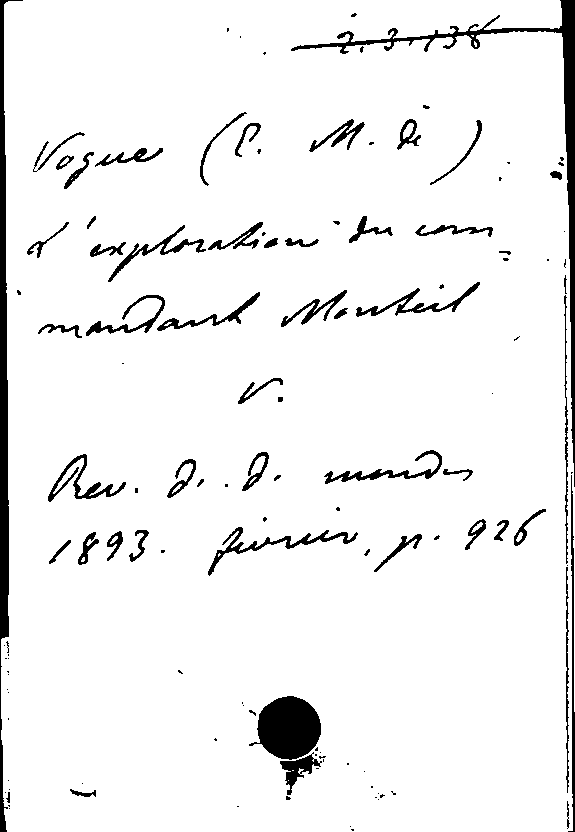 2.3.138
Vogue (E. M. de)
L'exploration du com=
mandant Monteil
v.
Rev. d. d. mondes
1893. février, p. 926